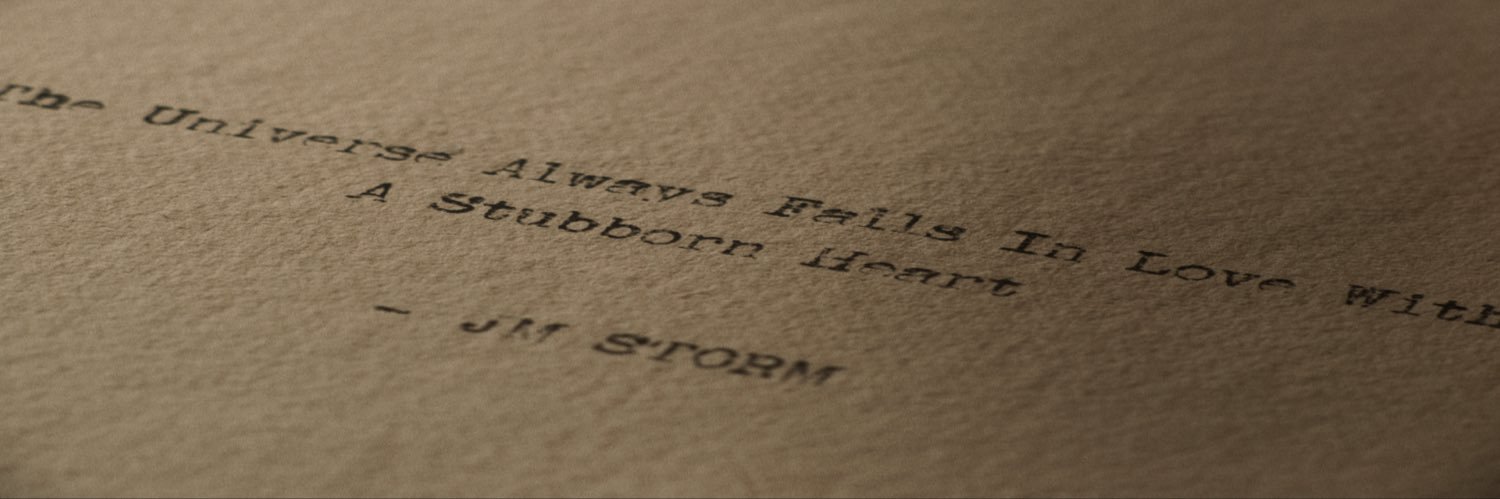 The Universe Always Fails In Love With
A Stubborn Heart
- JM STORM